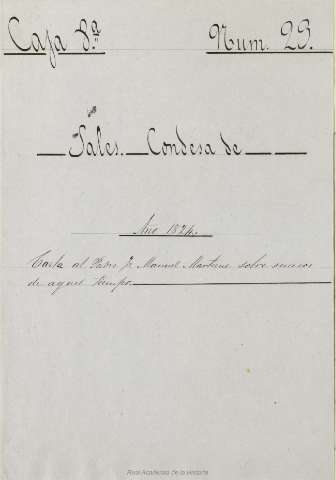 Caja 8.ª Num. 29.
Sales. Condesa de
Año 1824.
Carta al Padre Fr. Manuel Martinez sobre sucesos
de aquel tiempo.
Real Academia de la Historia